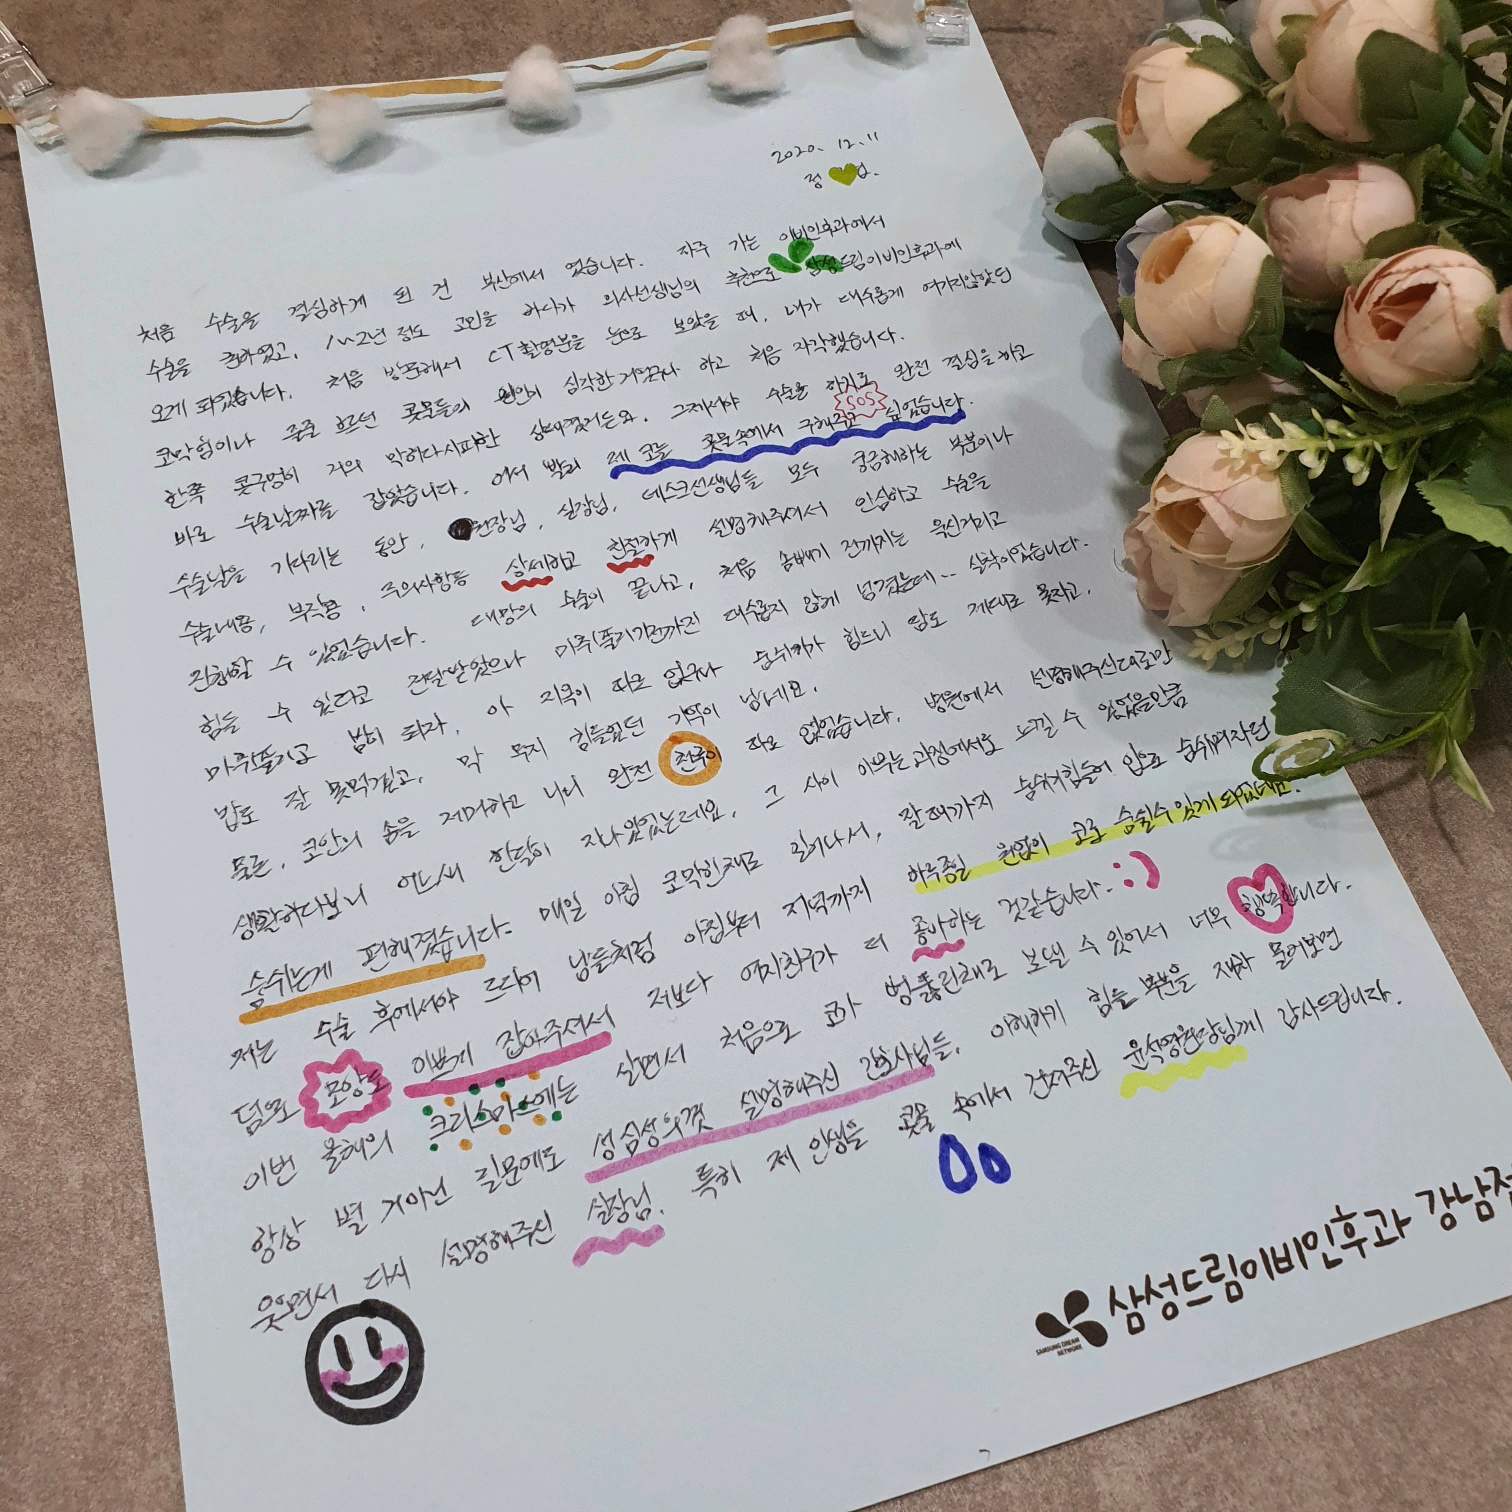 2020. 12. 11
정 업.
처음 수술을 결심하게 된 건 부산에서 였습니다. 자주 가는 이비인후과에서
수술을 권하였고, 1~2년 정도 고민을 하다가 의사선생님의 추천으로 삼성드림이비인후과에
오게 되었습니다. 처음 방문해서 CT촬영분을 눈으로 보았을 때, 내가 대수롭게 여기지않았던
코막힘이나 줄줄 흐르던 콧물들의 원인이 심각한거였구나 하고 처음 자각했습니다.
한쪽 콧구멍이 거의 막히다시피한 상태였거든요. 그제서야 수술을 하자로 완전 결심을 하고
SOS
바로 수술날짜를 잡았습니다. 어서 빨리 제 코를 콧물속에서 구해주고 싶었습니다.
수술날을 기다리는 동안, 원장님, 실장님, 데스크선생님들 모두 궁금해하는 부분이나
수술내용, 부작용, 주의사항등 상세하고 친절하게 설명해주셔서 안심하고 수술을
진행할 수 있었습니다. 대망의 수술이 끝나고, 처음 솜빼기 전까지는 욱신거리고
힘들 수 있다고 전달받았으나 마취풀리기전까진 대수롭지 않게 넘겼는데.. 실착이었습니다.
마취풀리고 밤이 되자, 아 지옥이 따로 없구나 숨쉬기가 힘드니 잠도 제대로 못자고,
밥도 잘 못먹겠고, 막 무지 힘들었던 기억이 납네요.
물론, 코안의 솜을 제거하고 나니 완전 천국이 따로 없었습니다. 병원에서 설명해주신대로만
생활하다보니 어느새 한달이 지나있었는데요, 그 사이 아무는과정에서도 느낄 수 있었을만큼
숨쉬는게 편해졌습니다. 매일 아침 코막힌채로 일어나서, 잘때까지 숨쉬기힘들어 입으로 숨쉬며자던
저는 수술 후에서야 드디어 남들처럼 아침부터 저녁까지 하루종일 원없이 코로 숨쉴수있게 되었네요.
덤으로 모양도 이쁘게 잡아주셔서 저보다 여자친구가 더 좋아하는 것같습니다. :)
이번 올해의 크리스마스에는 살면서 처음으로 코가 뻥뚫린채로 보낼 수 있어서 너무 행복합니다.
항상 별 거아닌 질문에도 성심성의껏 설명해주신 간호사님들, 이해하기 힘들 부분을 재차 물어보면
웃으면서 다시 설명해주신 실장님. 특히 제 인생을 콧물 속에서 건져주신 윤석영원장님께 감사드립니다.
삼성드림이비인후과 강남점
SAMSUNG DREAM
NETWORK